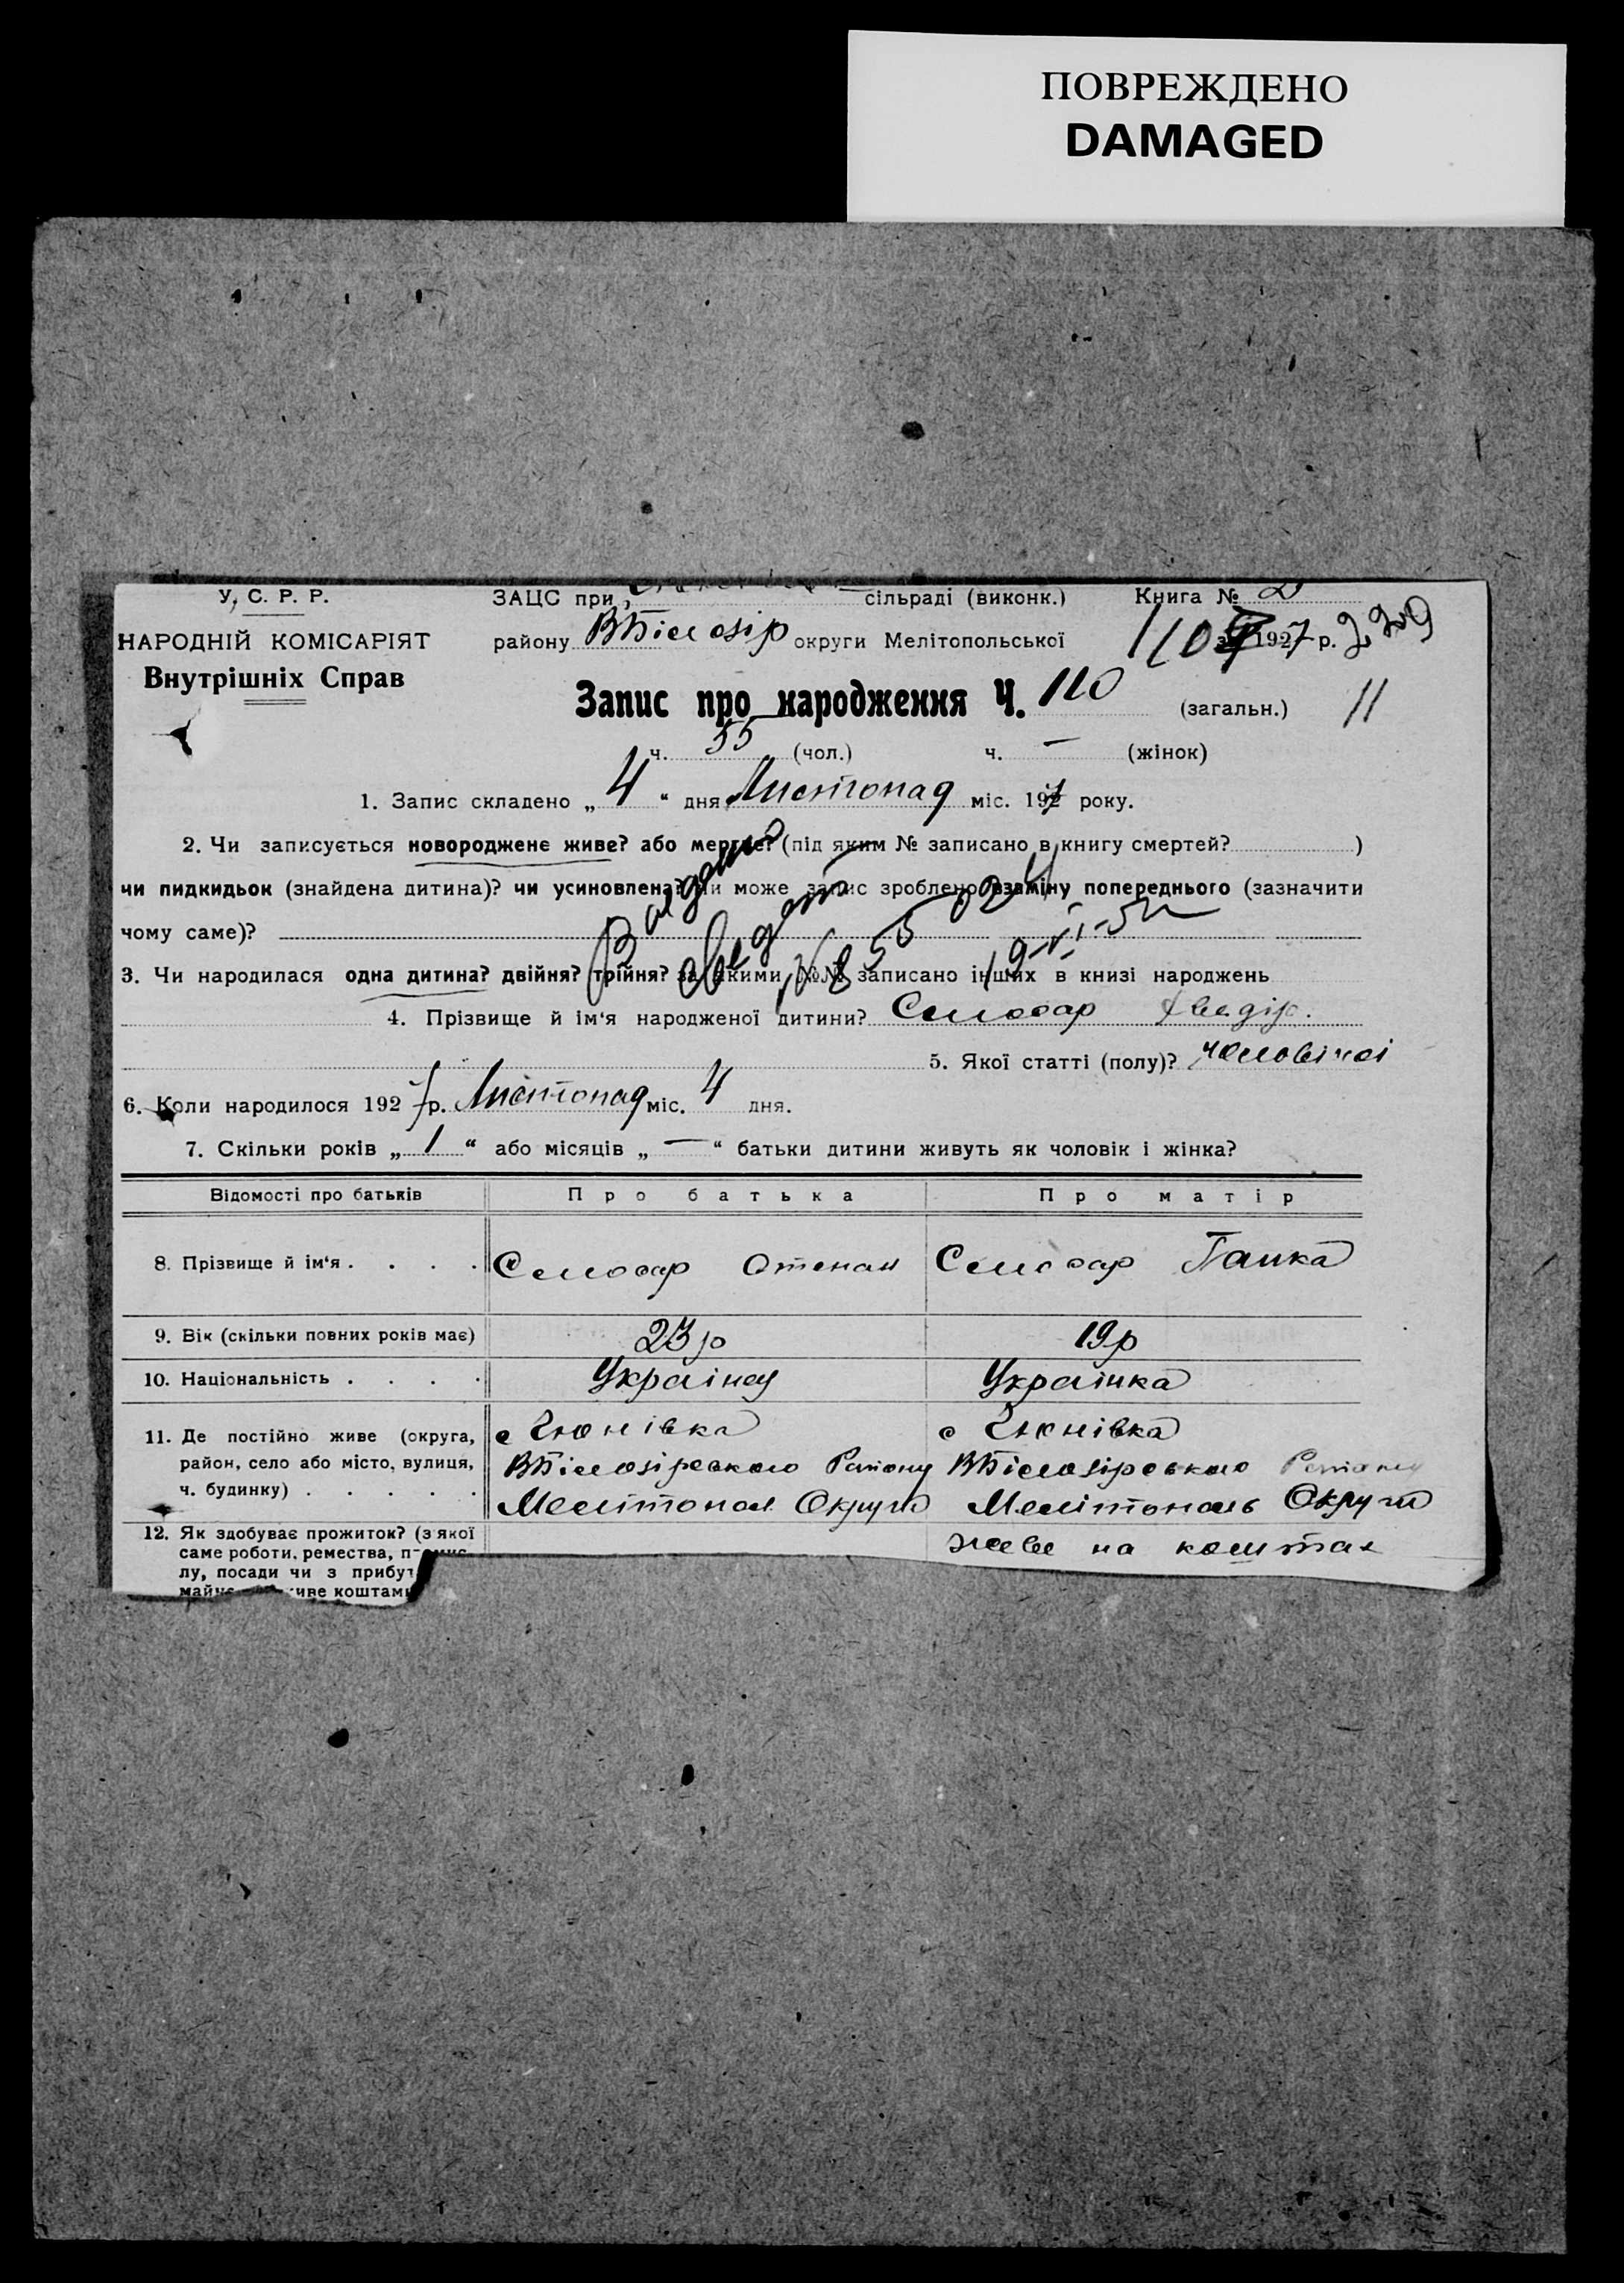 ПОВРЕЖДЕНО
DAMAGED
У. С. Р. Р.
ЗАЦС при сільраді (виконк.) Книга №
НАРОДНІЙ КОМІСАРІЯТ
району ВБілозір округи Мелітопольської 1927 р.
Внутрішніх Справ
Запис про народження Ч. 110 (загальн.) 11
ч. 55 (чол.) ч. — (жінок)
1. Запис складено „ 4 “ дня Листопад міс. 1927 року.
2. Чи записується новороджене живе? або мертве? (під яким № записано в книгу смертей? )
чи пидкидьок (знайдена дитина)? чи усиновлена? чи може запис зроблено взаміну попереднього (зазначити
чому саме)?
3. Чи народилася одна дитина? двійня? трійня? за якими №№ записано інших в книзі народжень
4. Прізвище й ім‘я народженої дитини? Слюсар Хведір.
5. Якої статті (полу)? чоловічої
6. Коли народилося 1927 р. Листопад міс. 4 дня.
7. Скільки років „ 1 “ або місяців „ — “ батьки дитини живуть як чоловік і жінка?
Відомості про батьків Про батька Про матір
8. Прізвище й ім‘я . . . . Слюсар Степан Слюсар Ганка
9. Вік (скільки повних років має) 23 р 19 р
10. Національність . . . . Українец Українка
11. Де постійно живе (округа,
район, село або місто, вулиця,
ч. будинку) . . . . .
ВБілозірського Району ВБілозірського Району
Мелітопол Округи Мелітополь Округи
12. Як здобуває прожиток? (з якої
саме роботи, ремества, промис
лу, посади чи з прибут
живе коштами
живе на коштах